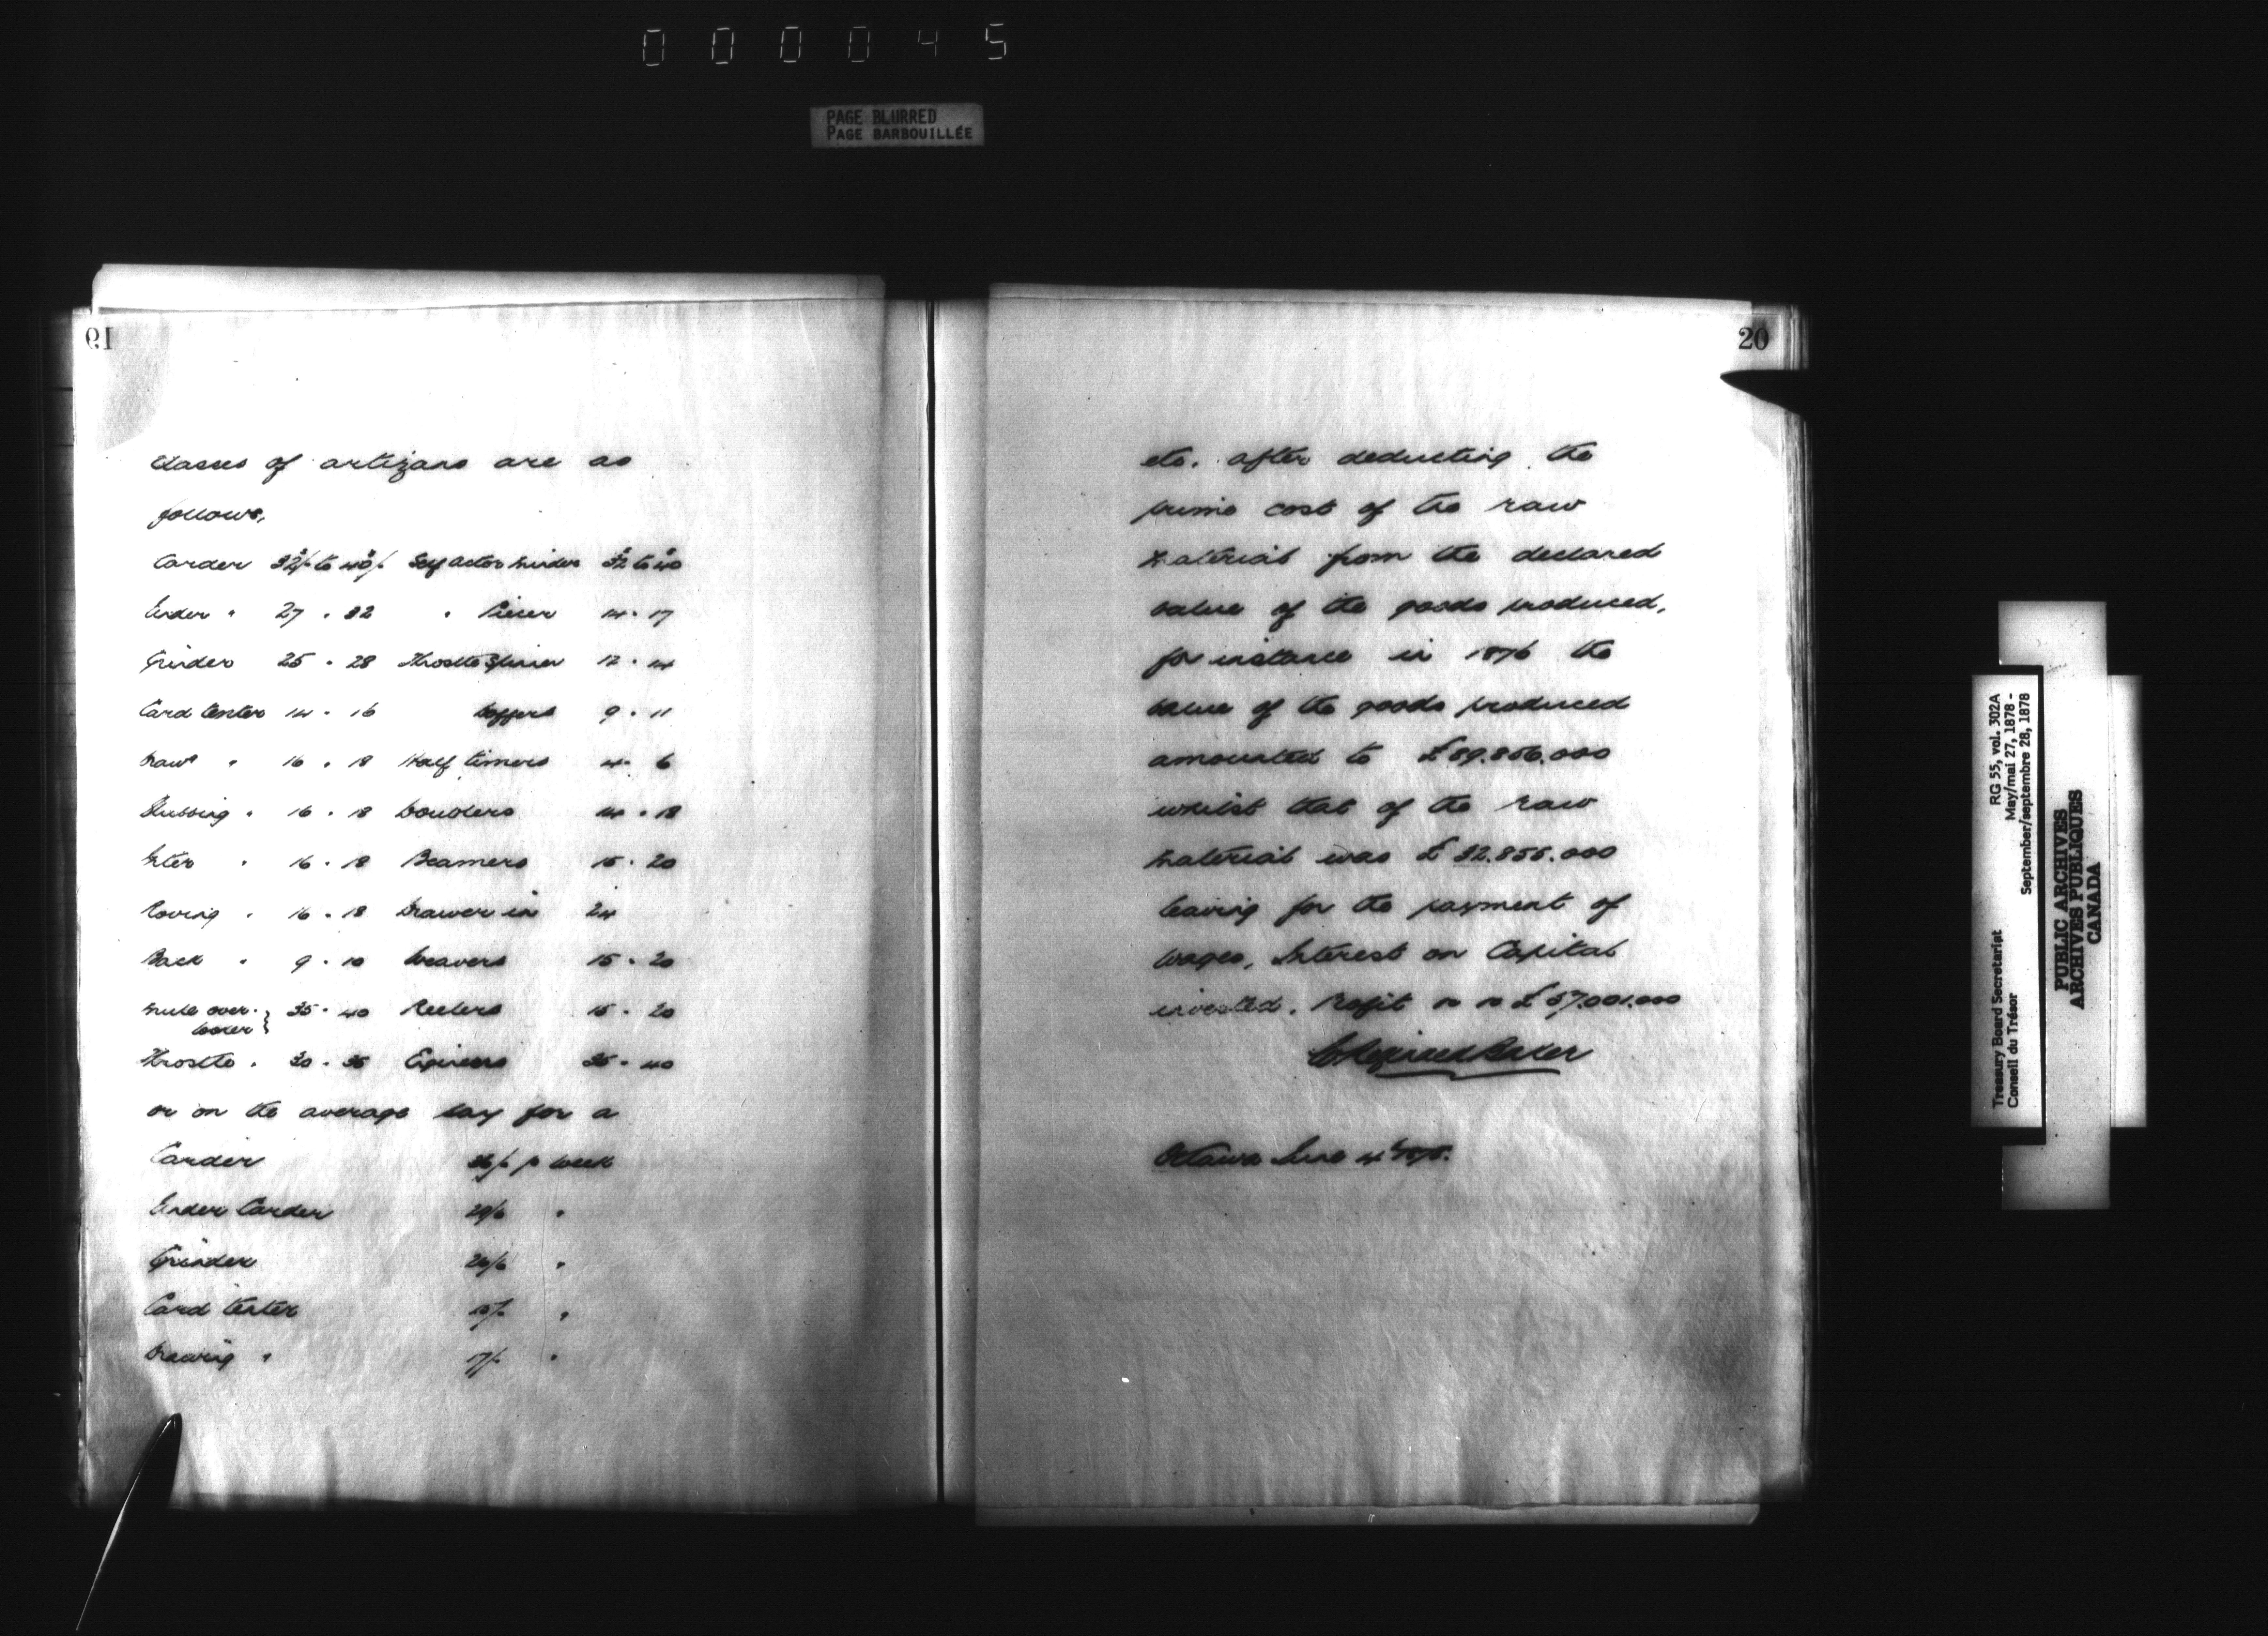 000045
PAGE BLURRED
PAGE BARBOUILLÉE
19
classes of artizans are as
follows,
Carder 32/- to 40/- Self actor minder 32 to 40
Under " 27 " 32 " Piecer 14 " 17
Grinder 25 " 28 Throstle Spinner 12 " 14
Card tenter 14 " 16 Doffers 9 " 11
Draw " 16 " 18 Half timers 4 " 6
Slubbing " 16 " 18 Doublers 14 " 18
Inter " 16 " 18 Beamers 15 " 20
Roving " 16 " 18 Drawer in 24
Back " 9 " 10 Weavers 15 " 20
Mule over-looker } 35 " 40 Reelers 15 " 20
Throstle " 30 " 35 Engineers 35 " 40
or on the average say for a
Carder 36/- p week
Under Carder 29/6 "
Grinder 26/6 "
Card tenter 15/- "
Drawing " 17/- "
20
etc. after deducting the
prime cost of the raw
material from the declared
value of the goods produced,
for instance in 1876 the
value of the goods produced
amounted to £89.856.000
whilst that of the raw
material was £32.855.000
leaving for the payment of
wages, Interest on Capital
invested, Profit £57.001.000
Ottawa June 4 1878.
Treasury Board Secretariat RG 55, vol. 302A
Conseil du Trésor May/mai 27, 1878 -
September/septembre 28, 1878
PUBLIC ARCHIVES
ARCHIVES PUBLIQUES
CANADA